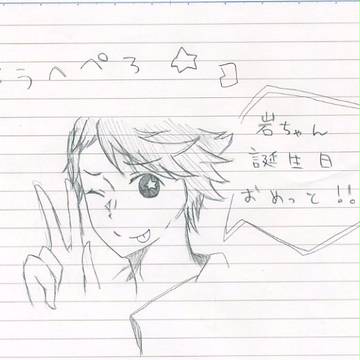 てへぺろ☆
岩ちゃん
誕生日
おめっと!!